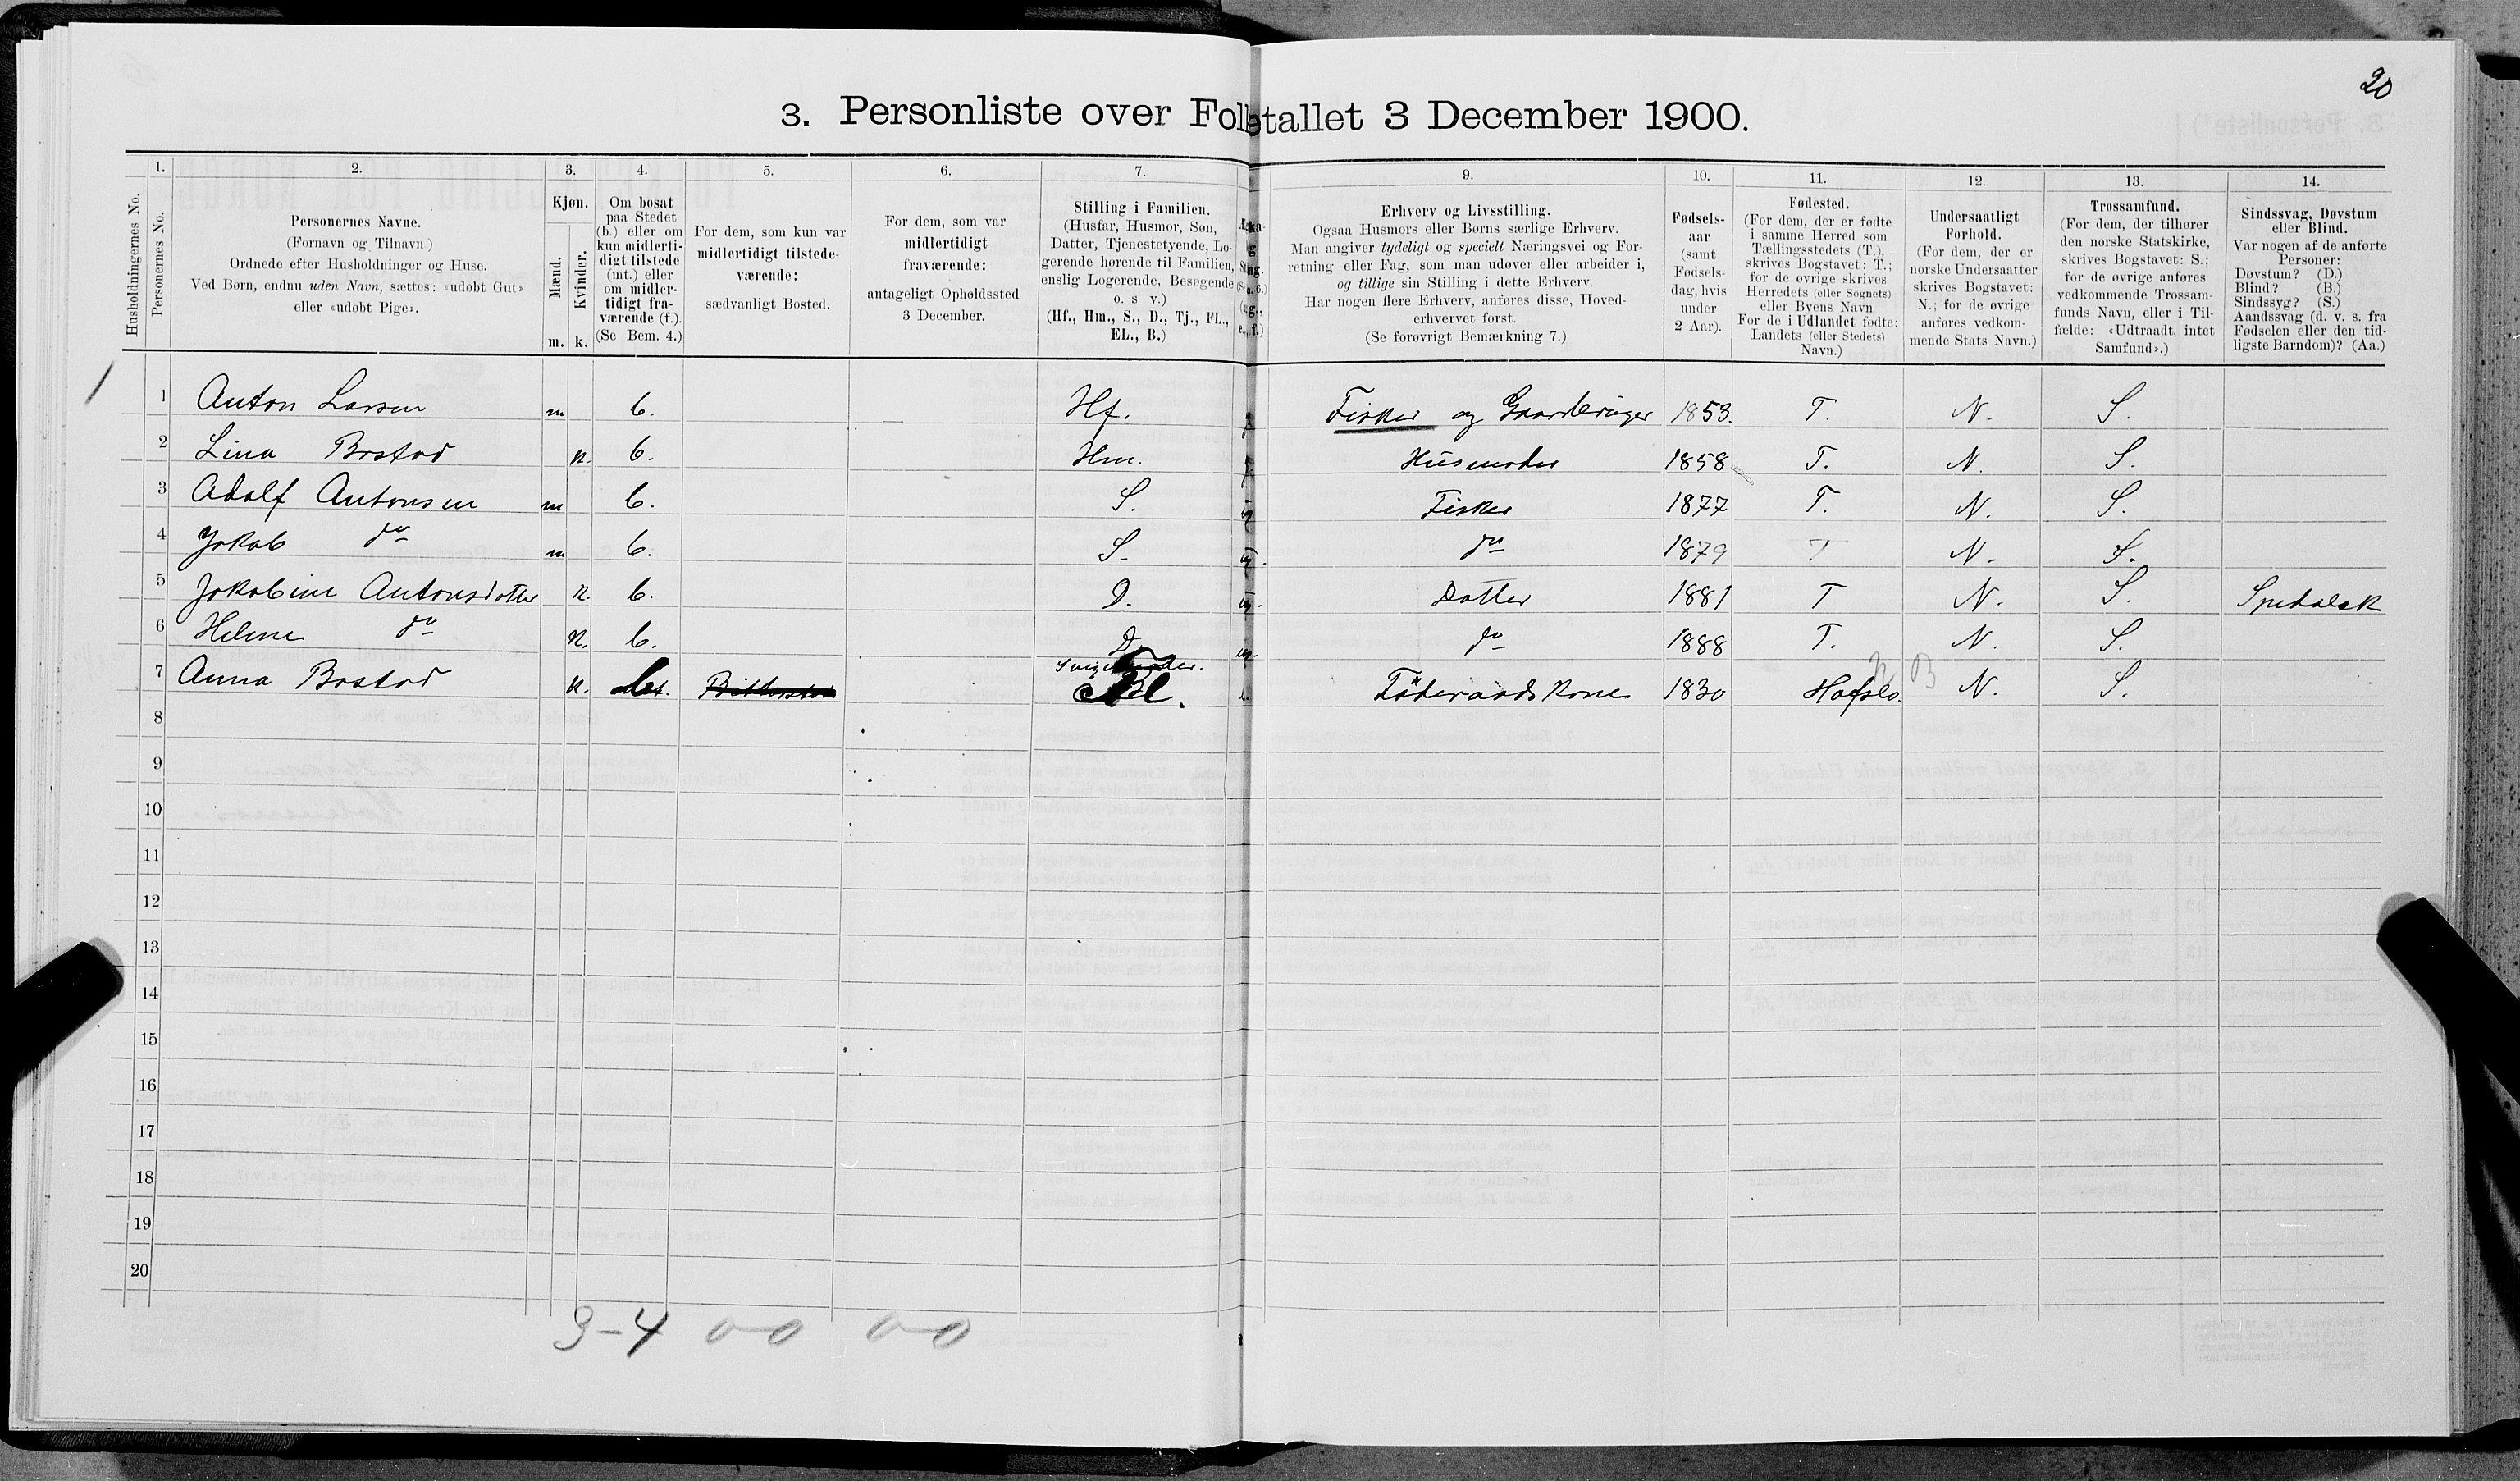 20
3. Personliste over Folketallet 3 December 1900.
1. 2. 3. 4. 5. 6. 7. 9. 10. 11. 12. 13. 14.
Husholdningernes No.
Personernes No.
Personernes Navne.
(Fornavn og Tilnavn)
Ordnede efter Husholdninger og Huse.
Ved Børn, endnu uden Navn, sættes: «udøbt Gut»
eller «udøbt Pige».
Kjøn.
Mænd.
Kvinder.
m. k.
Om bosat
paa Stedet
(b.) eller om
kun midlerti-
digt tilstede
(mt.) eller
om midler-
tidigt fra-
værende (f.).
(Se Bem. 4.)
For dem, som kun var
midlertidigt tilstede-
værende:
sædvanligt Bosted.
For dem, som var
midlertidigt
fraværende:
antageligt Opholdssted
3 December.
Stilling i Familien.
(Husfar, Husmor, Søn,
Datter, Tjenestetyende, Lo-
gerende hørende til Familien,
enslig Logerende, Besøgende
o. s v.)
(Hf., Hm., S., D., Tj., FL.,
EL., B.)
Erhverv og Livsstilling.
Ogsaa Husmors eller Børns særlige Erhverv.
Man angiver tydeligt og specielt Næringsvei og For-
retning eller Fag, som man udøver eller arbeider i,
og tillige sin Stilling i dette Erhverv.
Har nogen flere Erhverv, anføres disse, Hoved-
erhvervet først.
(Se forøvrigt Bemærkning 7.)
Fødsels-
aar
(samt
Fødsels-
dag, hvis
under
2 Aar).
Fødested.
(For dem, der er fødte
i samme Herred som
Tællingsstedets (T.),
skrives Bogstavet: T.;
for de øvrige skrives
Herredets (eller Sognets)
eller Byens Navn
For de i Udlandet fødte:
Landets (eller Stedets)
Navn.)
Undersaatligt
Forhold.
(For dem, der er
norske Undersaatter
skrives Bogstavet:
N.; for de øvrige
anføres vedkom-
mende Stats Navn.)
Trossamfund.
(For dem, der tilhører
den norske Statskirke,
skrives Bogstavet: S.;
for de øvrige anføres
vedkommende Trossam-
funds Navn, eller i Til-
fælde: «Udtraadt, intet
Samfund».)
Sindssvag, Døvstum
eller Blind.
Var nogen af de anførte
Personer:
Døvstum? (D.)
Blind? (B.)
Sindssyg? (S.)
Aandssvag (d. v. s. fra
Fødselen eller den tid-
ligste Barndom)? (Aa.)
1 Anton Larsen m b. Hf. Fisker og Gaardbruger 1853. T. N. S.
2 Lina Bostad k. b. Hm. Husmoder 1858 T. N. S.
3 Adolf Antonsen m b. S. Fisker 1877 T. N. S.
4 Jakob do m b. S. do 1879 T N. S.
5 Jakobine Antonsdotter k. b. D. Datter 1881 T N. S. Spedalsk
6 Helene do k. b. D. do 1888 T. N. S.
7 Anna Bostad k. Føderaadskone 1830 Hafslo. N. S.
8
9
10
11
12
13
14
15
16
17
18
19
20
3-4 0-0 0-0